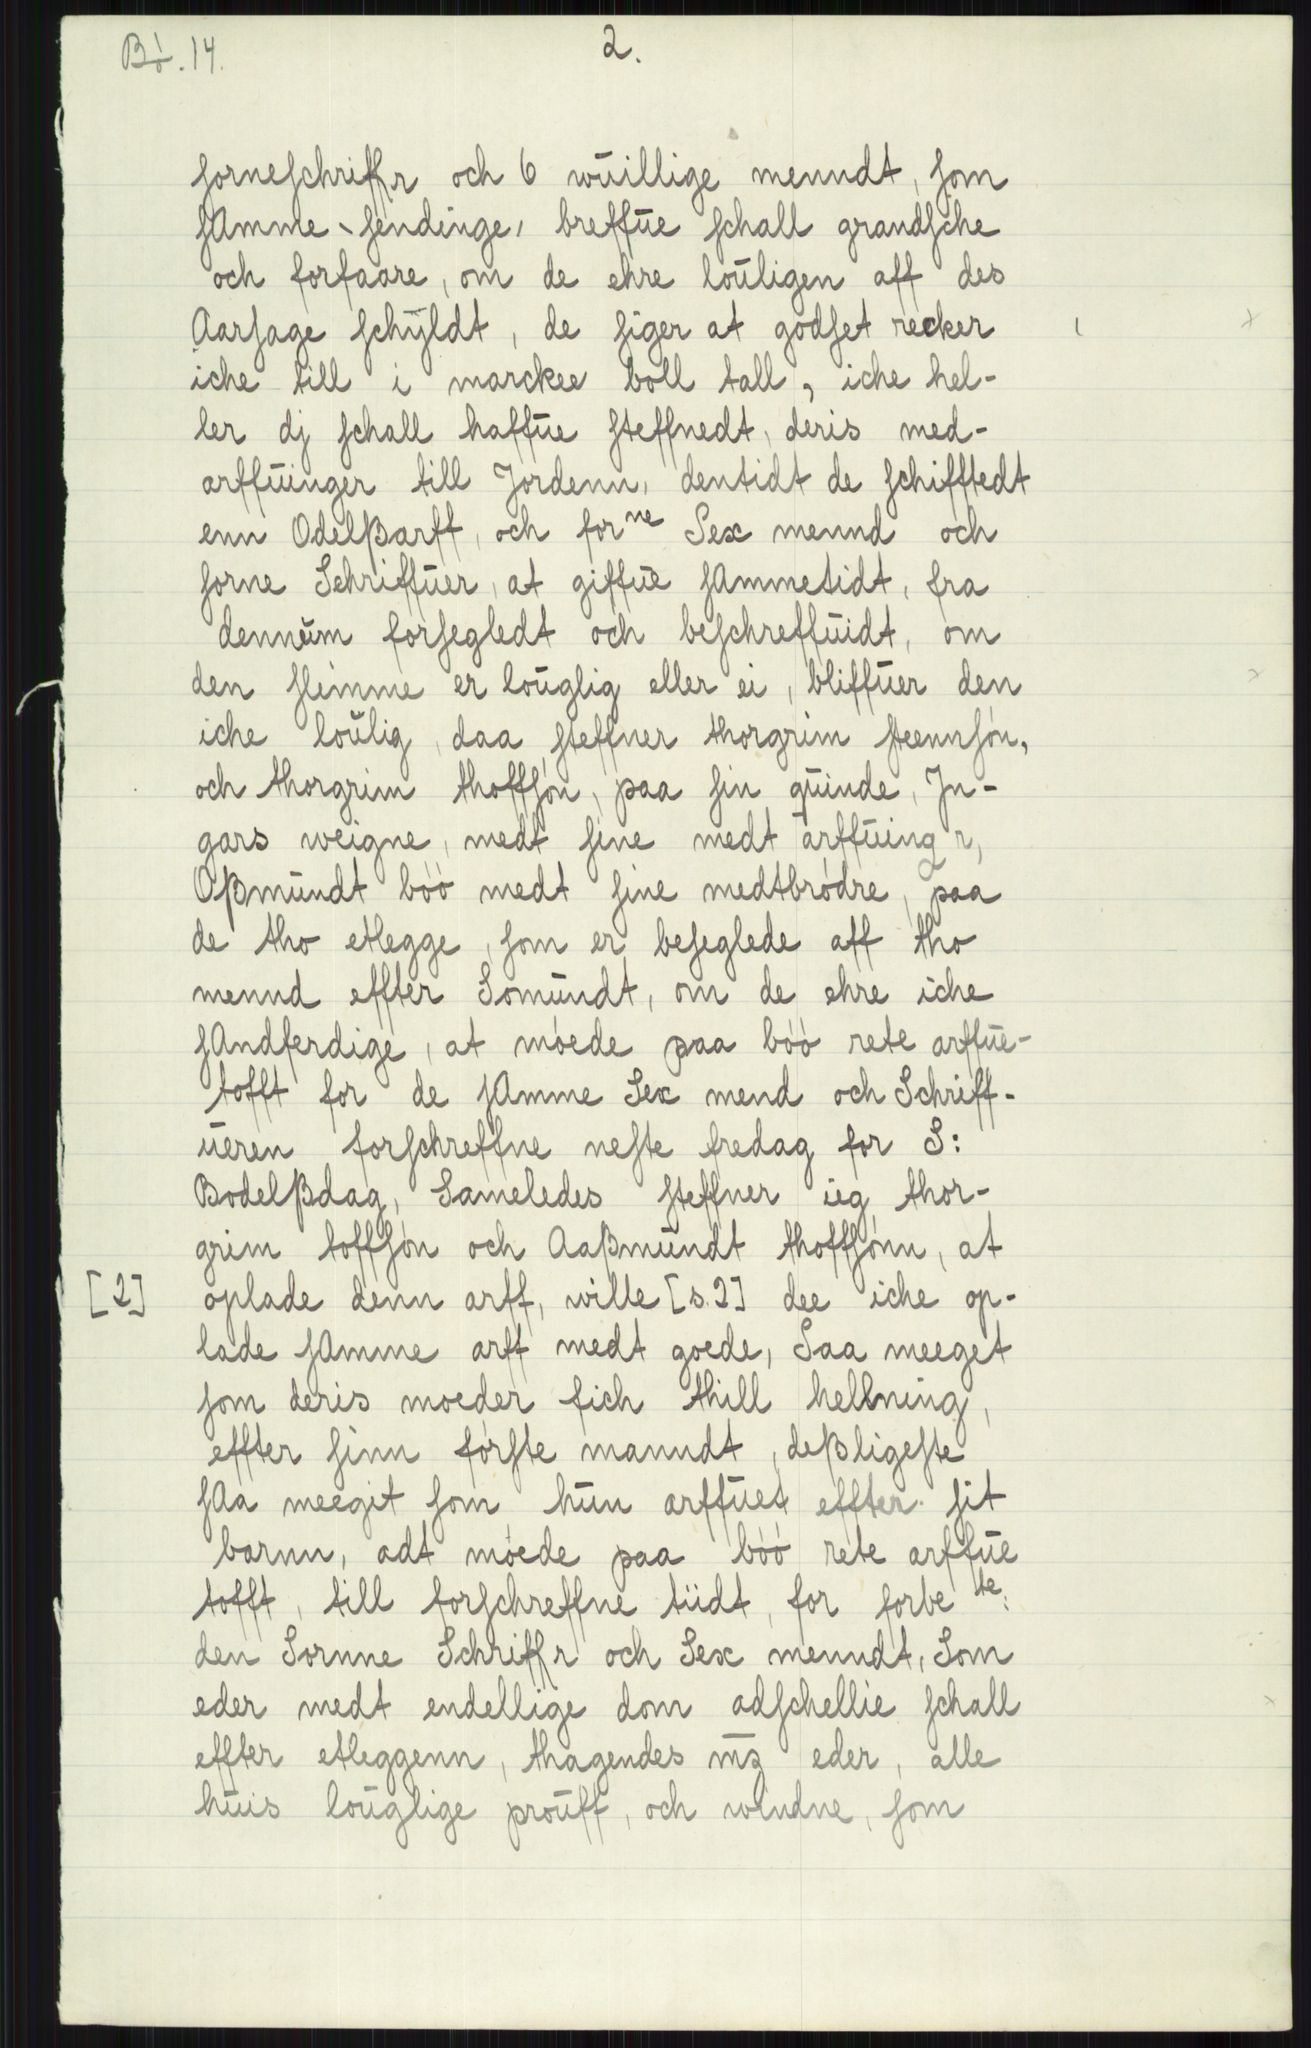 Bö. 14.
2.
sorneschriffr och 6 wuillige menndt, som
samme sendinge, breffue schall grandsche
och forfaare, om de ehre louligen aff des
Aarsage schÿldt, de siger at godset recker
iche till i marckee boll tall, iche hel-
ler dj schall haffue steffnedt, deris med-
arffuinger till Jordenn, dentidt de schifftedt
enn Odelßarff, och forne Sex mennd och
sorne Schriffuer, at giffue sammetidt, fra
dennum forsegledt och beschreffuidt, om
den stemme er louglig eller ei, bliffuer den
iche loulig, daa steffner thorgrim steennsön,
och thorgrim thoffsön, paa sin quinde, In-
gars weigne, medt sine medt arffuing r,
Oßmundt böö medt sine medtbrödre, paa
de tho etlegge, som er beseglede aff tho
mennd effter Somundt, om de ehre iche
sandferdige, at möede paa böö rete arffue-
tofft for de samme Sex mend och Schriff-
ueren forschreffne neste fredag for S:
Bodelßdag, Sameledes steffner ieg thor-
grim toffsön och Aaßmundt thoffsönn, at
[2] oplade denn arff, wille [s. 2] dee iche op-
lade samme arff medt goede, Saa meeget
som deris moeder fich thill hellning,
effter sinn förste manndt, deßligeste
saa meegit som hun arffuet effter sit
barnn, adt möede paa böö rete arffue
tofft, till forschreffne tiidt, for forbe te:
den Sornne Schriffr och Sex menndt, Som
eder medt endellige dom adschellie schall
effter etleggenn, thagendes mz eder, alle
huis louglige prouff, och windne, som